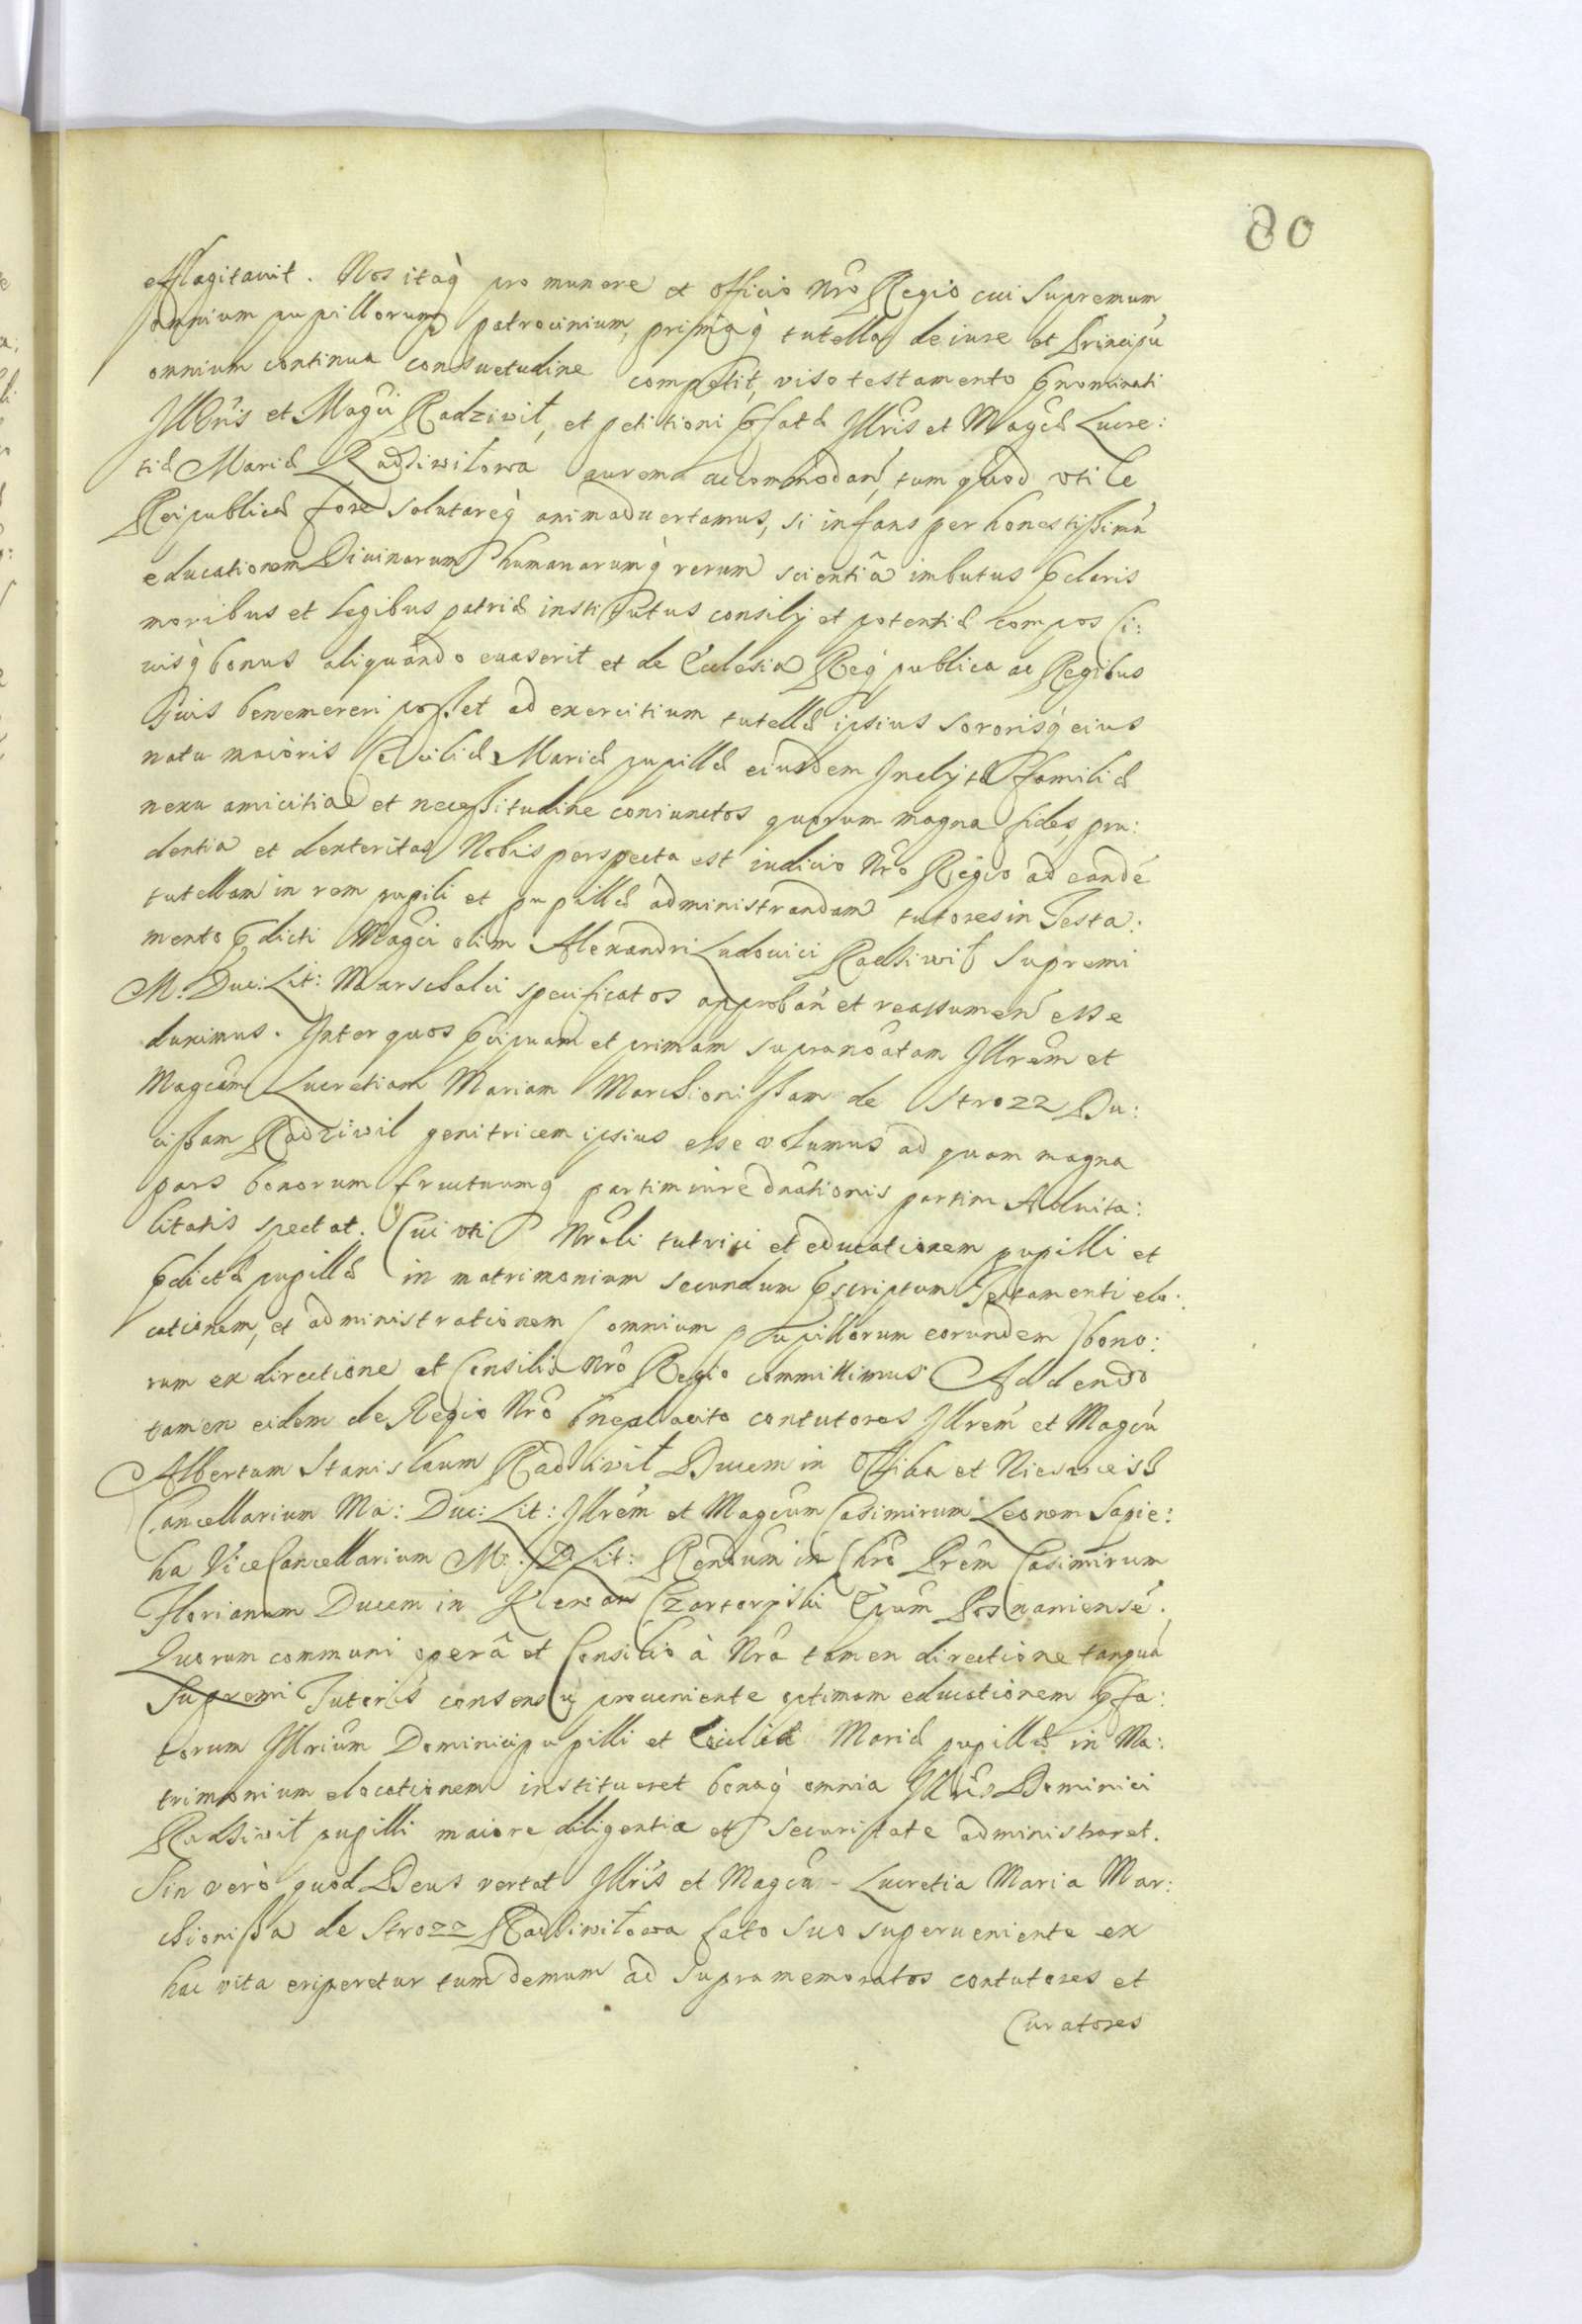 80
efflagitauit. Nos itaq̀ pro munere et officio Nrõ Regio cui Supremum
omnium pupillorum patrocinium, primaq̀ tutella de iure et Principũ
omnium continua consuetudine competit, viso testamento p̃nominati
Illrĩs et Magci Radziwił, et petitioni p̃fatæ Illrĩs et Magcæ Lucre:
tiæ Mariæ Radziwiłowa aurem accommodan̄, tum quod vtile
Reipublicæ fore salutareq̀ animaduertamus, si infans per honestissimã
educationem Diuinarum humanarumq̀ rerum scientiâ imbutus p̃claris
moribus et legibus patriæ institutus consilij et potentiæ compos Ci:
uisq̀ bonus aliquando euaserit et de Ecclesia Req̀ publica ac Regibus
suis benemereri posset ad exercitium tutellæ ipsius sororisq̀ eius
natu maioris Ceciliæ Mariæ pupillæ eiusdem Inclytæ familiæ
nexu amicitiae et necessitudine coniunctos quorum magna fides, pru:
dentia et dexteritas Nobis perspecta est iudicio Nrõ Regio ad eandẽ
tutellam in rem pupili et pupillæ administrandam tutores in Testa:
mento p̃dicti Magci olim Alexandri Ludouici Radsiwił Supremi
M: Duc: Lit: Marschalci specificatos approban̄ et reassumen̄ esse
duximus. Inter quos p̃cipuam et primam supranoãtam Illrẽm et
Magcam Lucretiam Mariam Marchionissam de Strozz Du:
cissam Radziwil genitricem ipsius esse volumus ad quam magna
pars bonorum fructuumq̀ partim iure dnãtionis partim Aduita:
litatis spectat. Cui vti Nrãli tutrici et educationem pupilli et
p̃dictæ pupillæ in matrimonium secundum p̃scriptum Testamenti elo:
cationem, et administrationem omnium Pupillorum eorundem bono:
rum ex directione et Consilio Nrõ Regio committimus Addendo
tamen eidem de Regio Nrõ bneplacito contutores Illrem et Magcũ
Albertum Stanislaum Radsiwił Ducem in Ołika et Nieswiesz
Cancellarium Ma: Duc: Lit: Illrẽm et Magcum Casimirum Leonem Sapie:
ha ViceCancellarium M: D Lit: Rendum in Chrõ Prẽm Casimirum
Florianum Ducem in Klewan Czartoryski Epum Posnaniensẽ.
Quorum communi operâ et Consilio à Nrã tamen directione tanquã
Supremi Tutoris consensuq̀ proueniente optimam educationem p̃fa:
torum Illrium Dominici pupilli et Ceciliæ Mariæ pupillæ in Ma:
trimonium elocationem institueret bonaq̀ omnia Illrĩs Dominici
Radsiwił pupilli maiore diligentia et securitate administraret.
Sin verò quod Deus vertat Illris et Magca Lucretia Maria Mar:
chionissa de Strozz Radsiwiłowa fato suo superueniente ex
hac vita eriperetur tum demum ad supramemoratos contutores et
Curatores